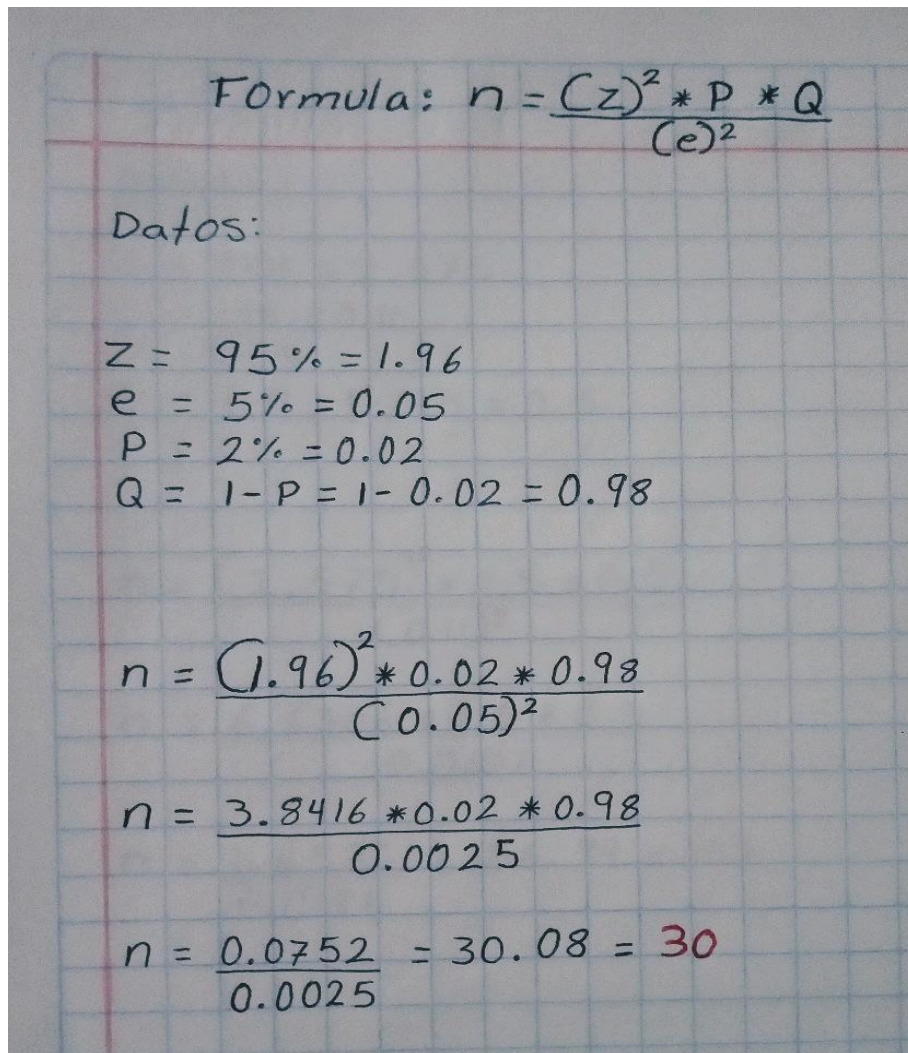 Formula: n = (z)² * P * Q
(e)²
Datos:
Z = 95% = 1.96
e = 5% = 0.05
P = 2% = 0.02
Q = 1 - P = 1 - 0.02 = 0.98
n = (1.96)² * 0.02 * 0.98
(0.05)²
n = 3.8416 * 0.02 * 0.98
0.0025
n = 0.0752 = 30.08 = 30
0.0025